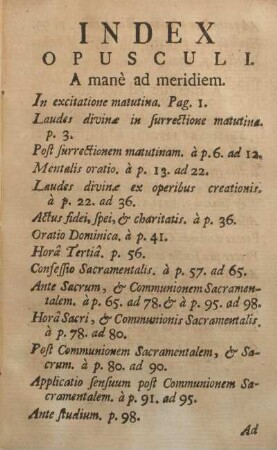 INDEX
OPUSCULI.
A manè ad meridiem.
In excitatione matutina. Pag. 1.
Laudes divinæ in surrectione matutina.
p. 3.
Post surrectionem matutinam. à p. 6. ad 12.
Mentalis oratio. à p. 13. ad 22.
Laudes divinæ ex operibus creationis.
à p. 22. ad 36.
Actus fidei, spei, & charitatis. à p. 36.
Oratio Dominica. à p. 41.
Horâ Tertiâ. p. 56.
Confessio Sacramentalis. à p. 57. ad 65.
Ante Sacrum, & Communionem Sacramen-
talem. à p. 65. ad 78. & à p. 95. ad 98.
Horâ Sacri, & Communionis Sacramentalis.
à p. 78. ad 80.
Post Communionem Sacramentalem, & Sa-
crum. à p. 80. ad 90.
Applicatio sensuum post Communionem Sa-
cramentalem. à p. 91. ad 95.
Ante studium. p. 98.
Ad